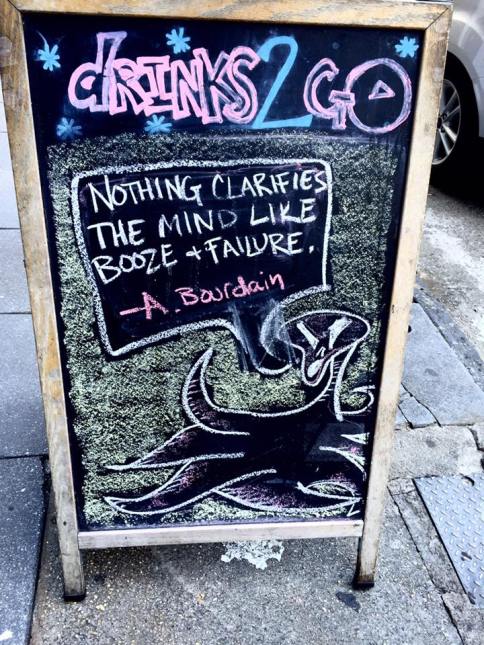 dRINKS 2 GO
NOTHING CLARIFIES
THE MIND LIKE
BOOZE + FAILURE.
-A. Bourdain